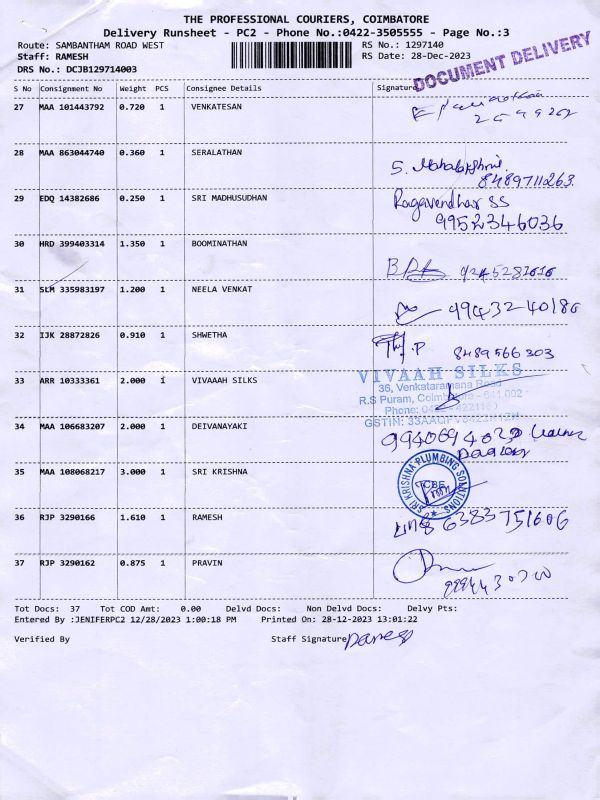 THE PROFESSIONAL COURIERS, COIMBATORE
Delivery Runsheet - PC2 - Phone No.:0422-3505555 - Page No.:3
Route: SAMBANTHAM ROAD WEST RS No.: 1297140
Staff: RAMESH RS Date: 28-Dec-2023
DRS No.: DCJB129714003
DOCUMENT DELIVERY
S No Consignment No Weight PCS Consignee Details Signature
27 MAA 101443792 0.720 1 VENKATESAN
28 MAA 863044740 0.360 1 SERALATHAN
S. Mahalakshmi
8489711263
29 EDQ 14382686 0.250 1 SRI MADHUSUDHAN Ragavendhar SS
9952346036
30 HRD 399403314 1.350 1 BOOMINATHAN
31 SLM 335983197 1.200 1 NEELA VENKAT
9943240186
32 IJK 28872826 0.910 1 SHWETHA
8489566303
33 ARR 10333361 2.000 1 VIVAAAH SILKS
VIVAAH SILKS
36, Venkataramana Road
R.S Puram, Coimbatore - 641 002
Phone:
GSTIN:
34 MAA 106683207 2.000 1 DEIVANAYAKI
35 MAA 108068217 3.000 1 SRI KRISHNA
SRI KRISHNA PLUMBING SOLUTIONS
CBE
36 RJP 3290166 1.610 1 RAMESH 6383751606
37 RJP 3290162 0.875 1 PRAVIN
Tot Docs: 37 Tot COD Amt: 0.00 Delvd Docs: Non Delvd Docs: Delvy Pts:
Entered By :JENIFERPC2 12/28/2023 1:00:18 PM Printed On: 28-12-2023 13:01:22
Verified By Staff Signature